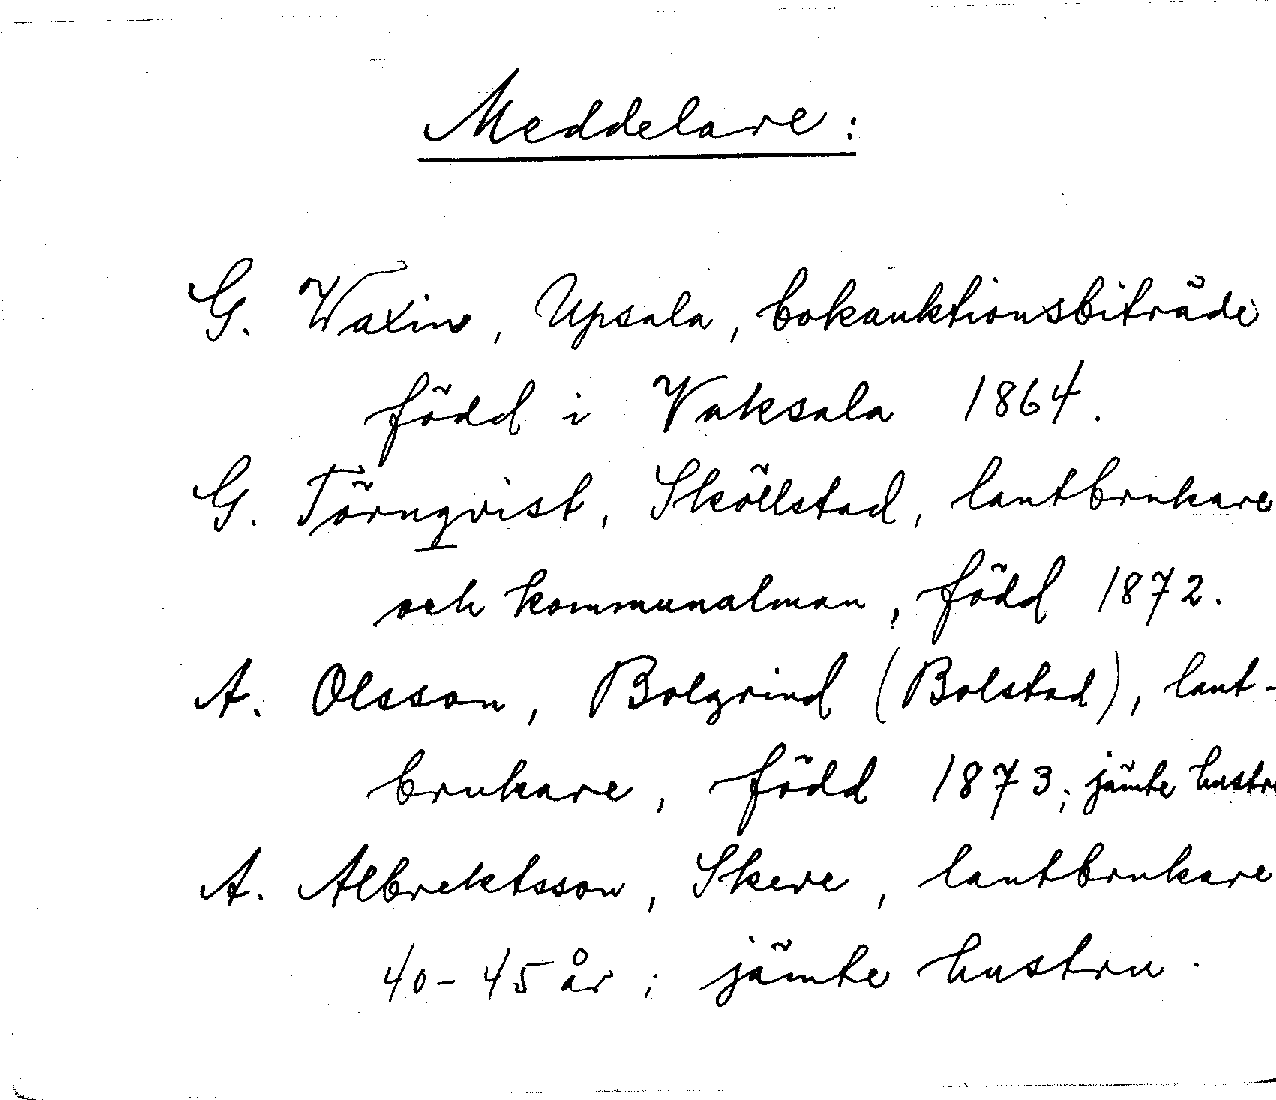 Meddelare:
G. Waxin, Upsala, bokauktionsbiträde
född i Vaksala 1864.
G. Törnqvist, Sköllstad, lantbrukare
och kommunalman, född 1872.
A. Olsson, Bolgrind (Bolstad), lant-
brukare, född 1873; jämte hustru
A. Albrektsson, Skeve, lantbrukare
40-45 år; jämte hustru.